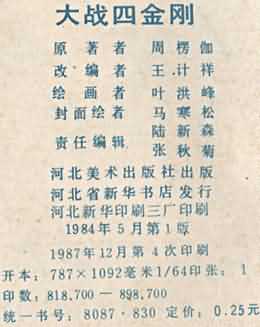 大战四金刚
原著者 周楞伽
改编者 王计祥
绘画者 叶洪峰
封面绘者 马寒松
责任编辑 陆新森
张秋菊
河北美术出版社出版
河北省新华书店发行
河北新华印刷三厂印刷
1984年5月第1版
1987年12月第4次印刷
开本：787×1092毫米1/64印张：1
印数：818.700—898.700
统一书号：8087·830 定价：0.25元